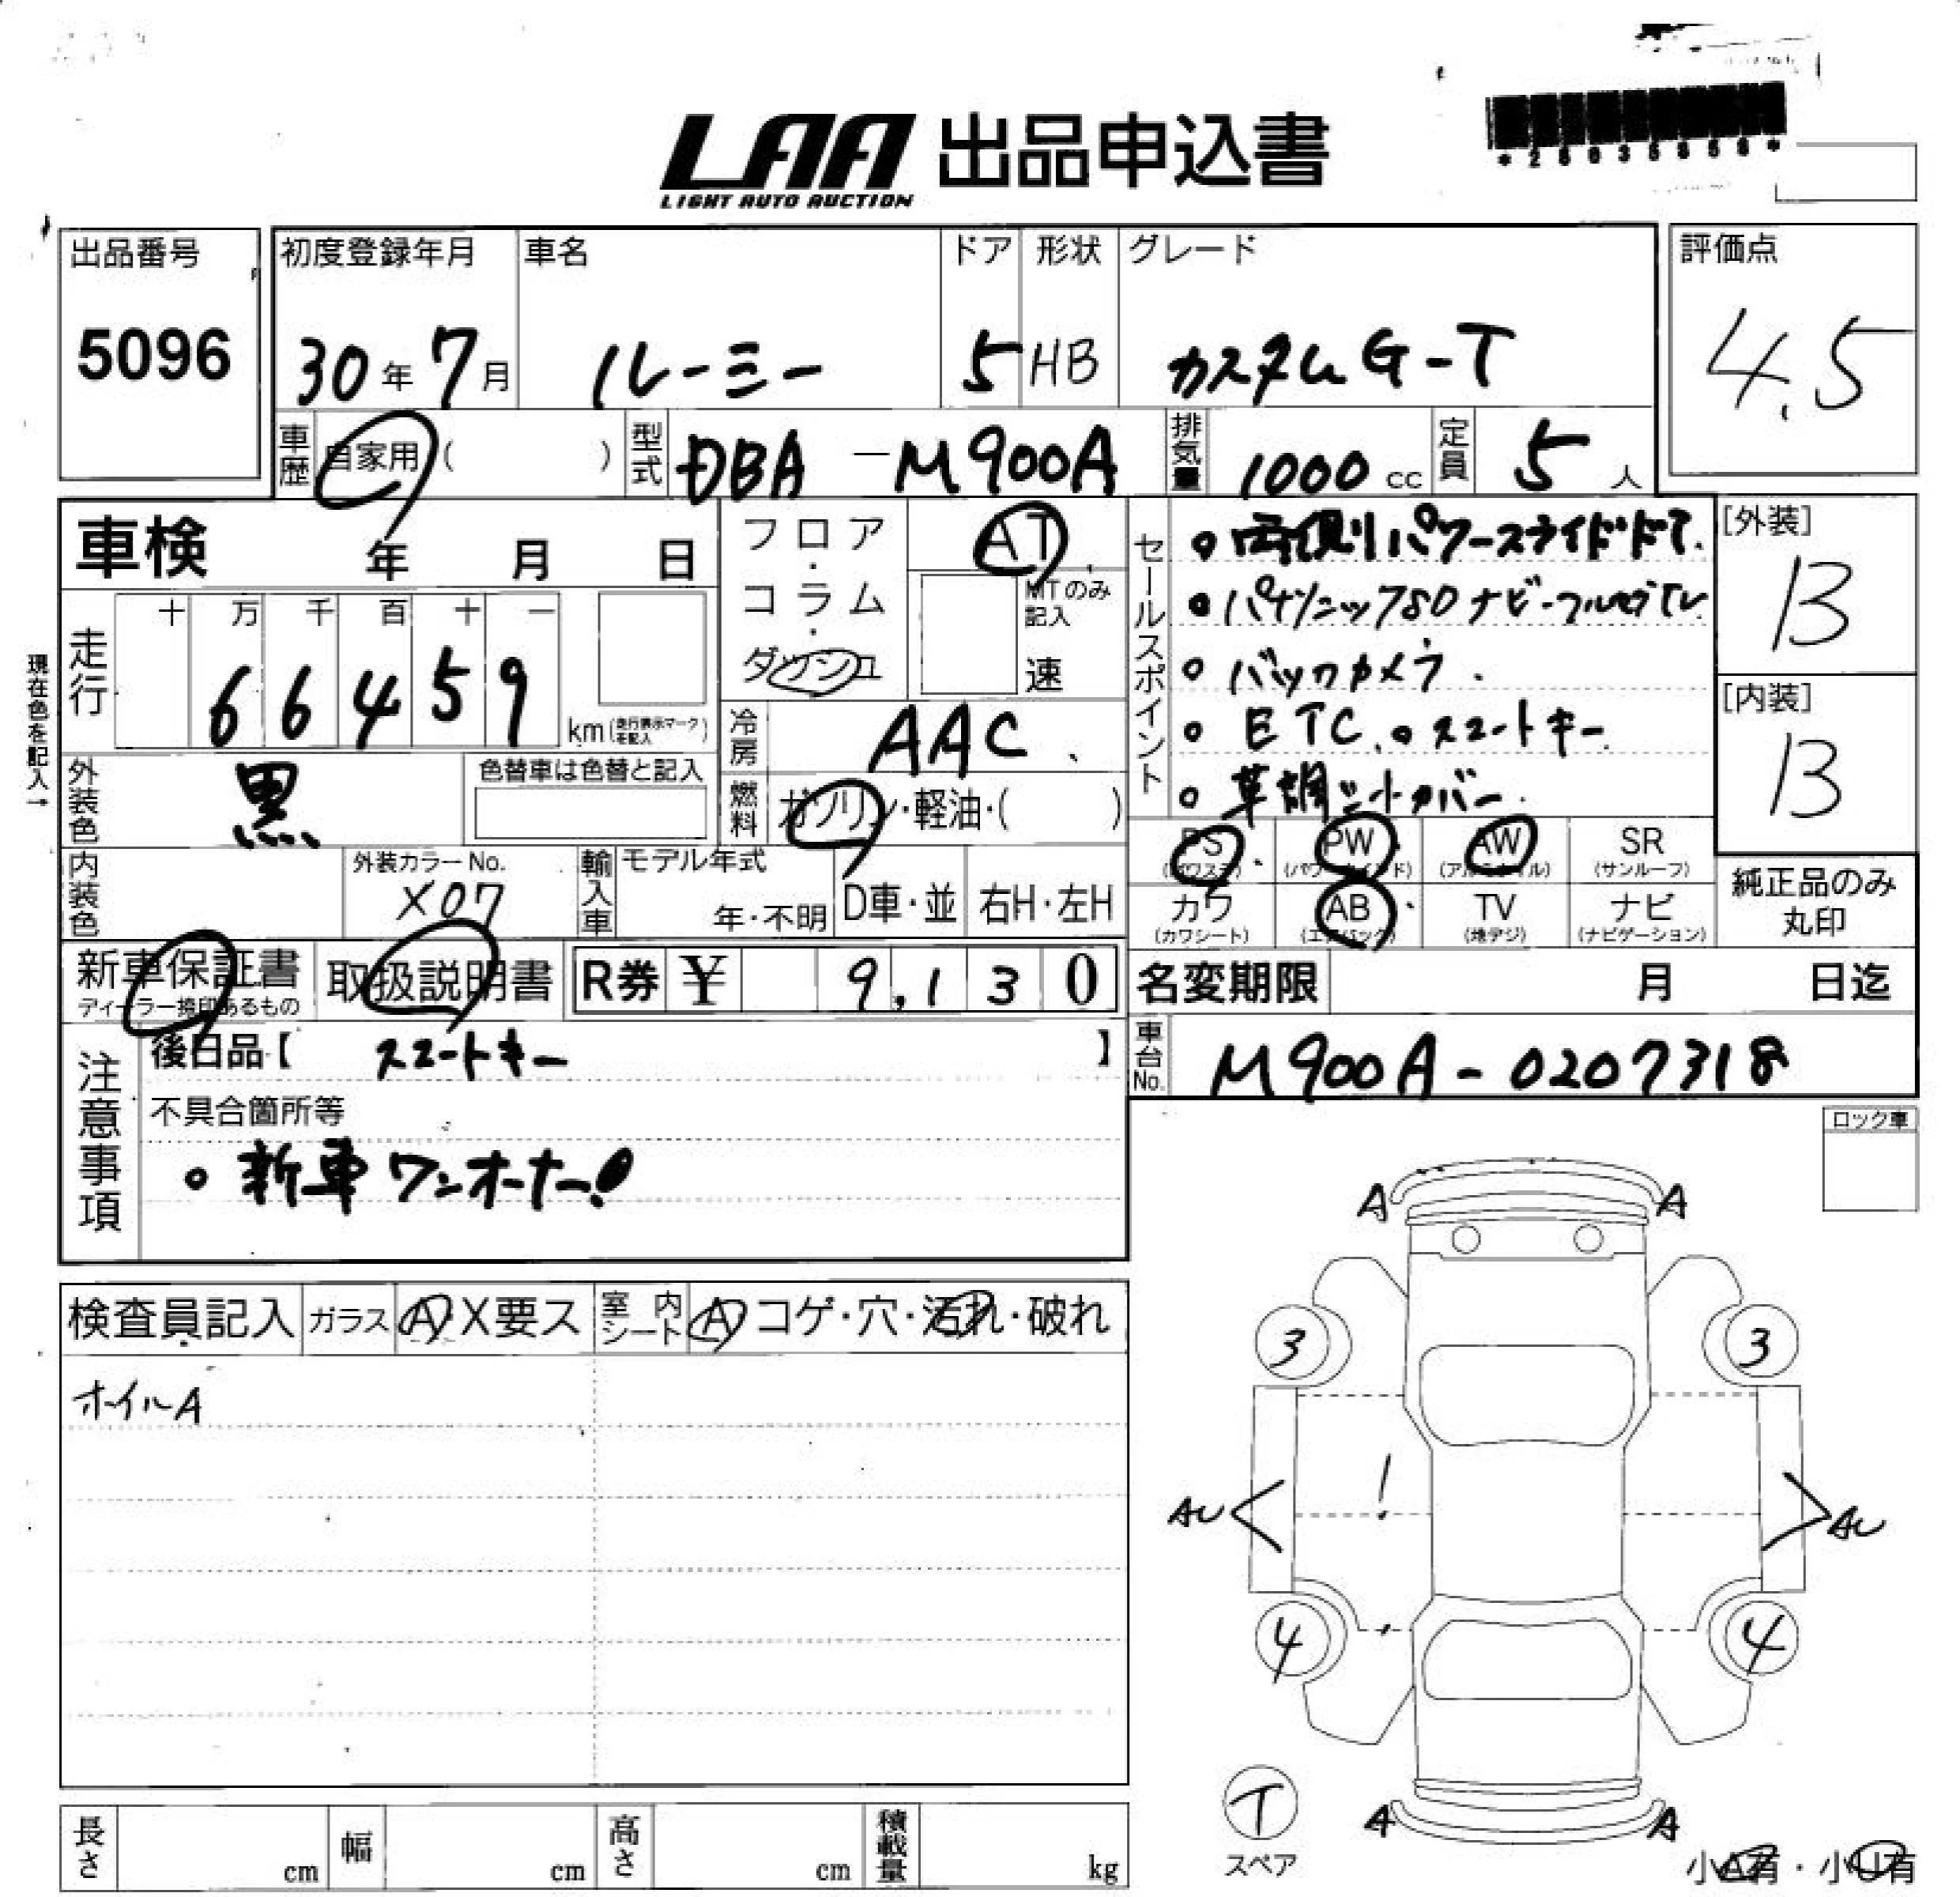 LAA 出品申込書
LIGHT AUTO AUCTION
出品番号
5096
初度登録年月
30年7月
車名
ルーミー
ドア
5
形状
HB
グレード
カスタムG-T
評価点
4.5
車歴
自家用( )
型式
DBA-M900A
排気量
1000cc
定員
5人
車検 年 月 日
現在色を記入→
走行
十 万 千 百 十 一
6 6 4 5 9
km(走行表示マークを記入)
外装色
黒
色替車は色替と記入
内装色
外装カラーNo.
X07
フロア・コラム・ダッシュ
AT
MTのみ記入
速
冷房
AAC
燃料
ガソリン・軽油・( )
輸入車
モデル年式
年・不明
D車・並
右H・左H
セールスポイント
。両側パワースライドドア.
。パナソニック7SDナビ-フルセグTV
。バックカメラ.
。ETC.。スマートキー.
。革調シートカバー.
PS
(パワステ)
PW
(パワーウインド)
AW
(アルミホイル)
SR
(サンルーフ)
カワ
(カワシート)
AB
(エアバック)
TV
(地デジ)
ナビ
(ナビゲーション)
[外装]
B
[内装]
B
純正品のみ丸印
新車保証書
ディーラー捺印あるもの
取扱説明書
R券 ¥ 9,130
名変期限 月 日迄
車台No.
M900A-0207318
注意事項
後日品【 スマートキー 】
不具合箇所等
。新車ワンオーナー!
ロック車
検査員記入
ガラス
A X要ス
室内シート
A コゲ・穴・汚れ・破れ
ホイルA
A A
3 3
AU AU
4 4
T
スペア
A A
小A有・小U有
長さ cm
幅 cm
高さ cm
積載量 kg